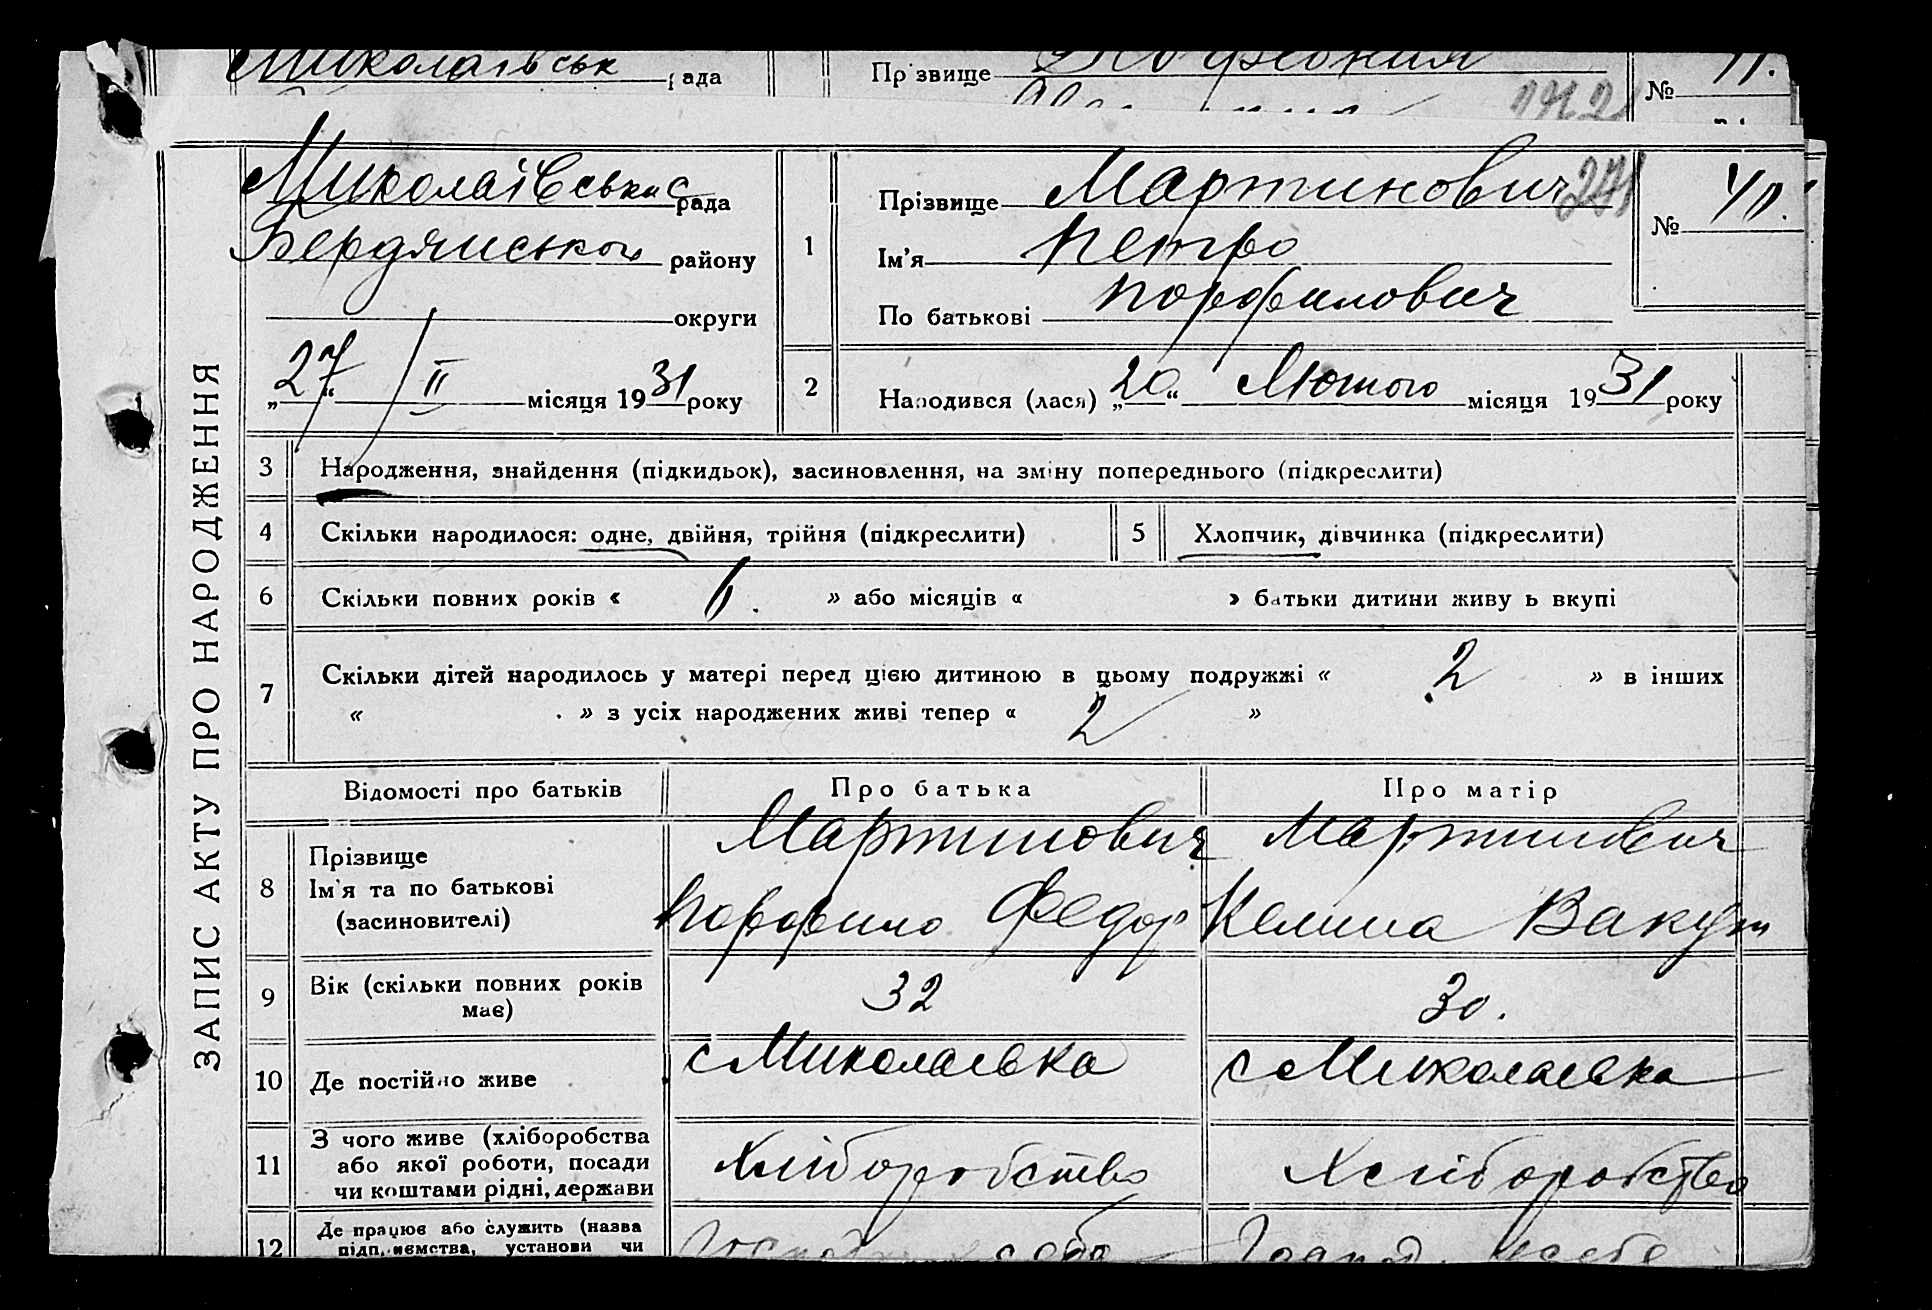 Миколаївськ рада
Прізвище
№ 11.
142
ЗАПИС АКТУ ПРО НАРОДЖЕННЯ
Миколаївська с рада
Бердянського району
округи
„27“ II місяця 1931 року
1
Прізвище Мартинович
271
Ім'я Петро
По батькові Порфилович
№ 40.
2
Народився (лася) „20“ Лютого місяця 1931 року
3 Народження, знайдення (підкидьок), засиновлення, на зміну попереднього (підкреслити)
4 Скільки народилося: одне, двійня, трійня (підкреслити)
5 Хлопчик, дівчинка (підкреслити)
6 Скільки повних років « 6. » або місяців « » батьки дитини живуть вкупі
7 Скільки дітей народилось у матері перед цією дитиною в цьому подружжі « 2 » в інших
« . » з усіх народжених живі тепер « 2 »
Відомості про батьків Про батька Про матір
8 Прізвище
Ім'я та по батькові
(засиновителі)
Мартинович
Порфило Федор
Мартинович
Келина Вакул
9 Вік (скільки повних років має) 32 30.
10 Де постійно живе с Миколаевка с Миколаевка
11 З чого живе (хліборобства
або якої роботи, посади
чи коштами рідні, держави
Хліборобство Хліборобство
12 Де працює або служить (назва
підприємства, установи чи